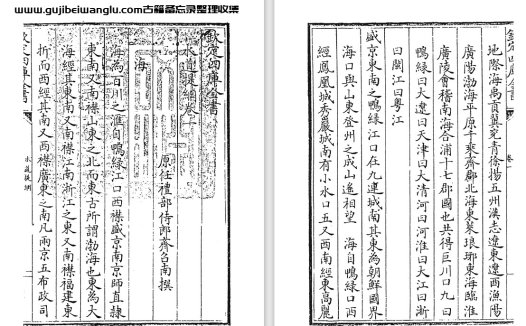 www.gujibeiwanglu.com古籍备忘录整理收集
欽定四庫全書
水道提綱卷一
原任禮部侍郎齊召南撰
海
海為百川之滙自鴨緑江口西襟盛京南京師直隸
東南又南襟山東之北而東古所謂渤海也東為大
海經其東又南襟江南浙江之東又南襟福建東
折而西經其南又西襟廣東之南凡兩京五布政司
欽定四庫全書
水道提綱
地際海禹貢冀兖青徐揚五州漢志遼東遼西漁陽
廣陽渤海平原千乘齊郡北海東萊琅琊東海臨淮
廣陵會稽南海合浦十七郡國也共得巨川口九曰
鴨緑曰大遼曰天津曰大清河曰河淮曰大江曰浙
曰閩江曰粤江
盛京東南之鴨緑江口在九連城南其東為朝鮮國界
海口與山東登州之成山遙相望　海自鴨緑江口西
經鳳凰城秀巖城南有小水口五又西南經東高麗
欽定四庫全書
卷一